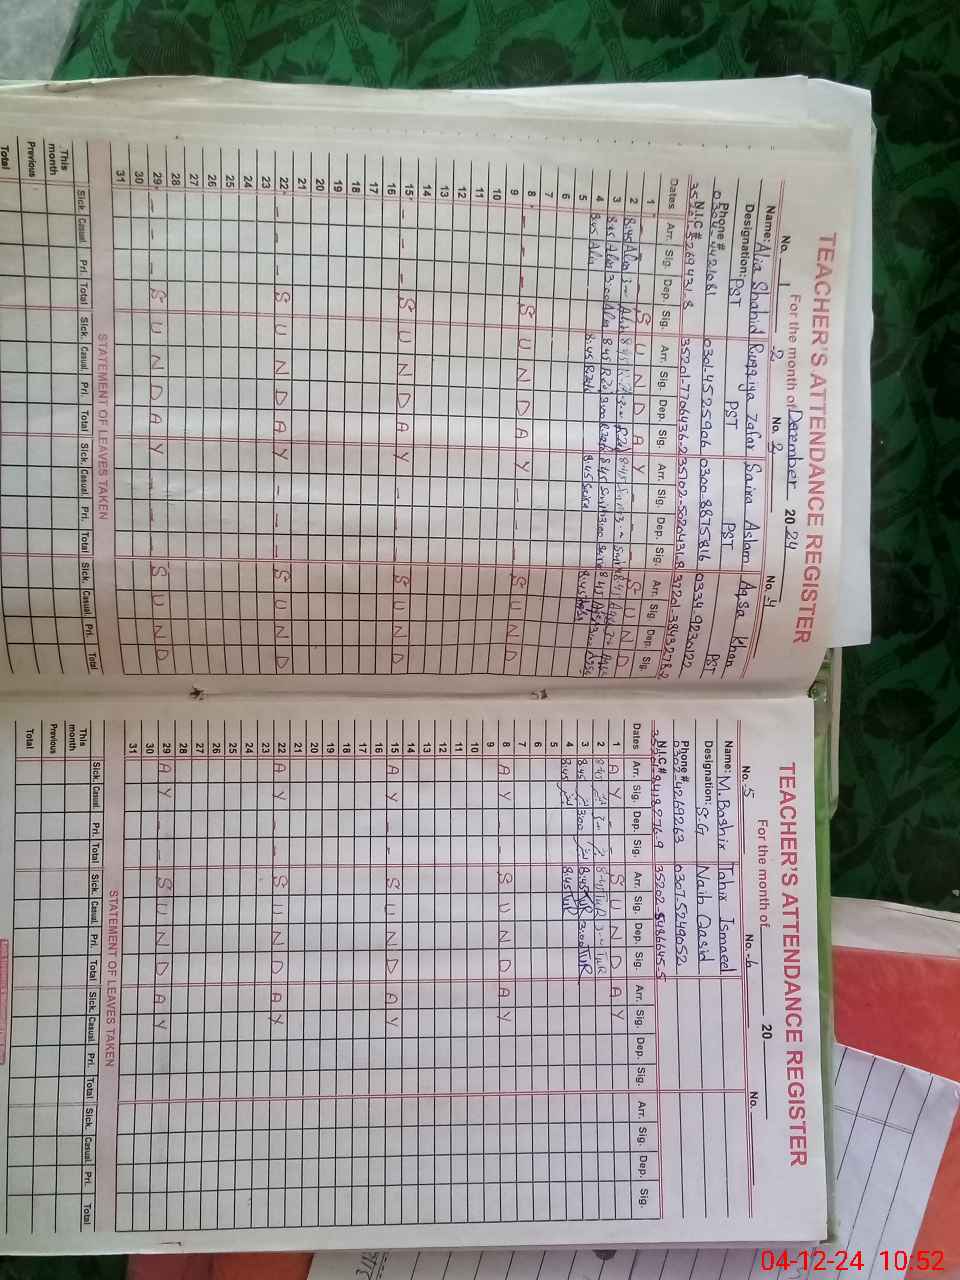 TEACHER'S ATTENDANCE REGISTER
For the month of December 2024
No. 1 2 No. 3 No. 4
Name: Alia Shahid Ruqqiya Zafar Saira Aslam Aqsa Khan
Designation: PST PST PST PST
Phone # 0304-4421081 0301-4525906 0300-8875816 0334-9230122
N.I.C # 35201-5269431-8 35201-7706436-2 35102-5020431-8 37201-3843278-2
Dates Arr. Sig. Dep. Sig. Arr. Sig. Dep. Sig. Arr. Sig. Dep. Sig. Arr. Sig. Dep. Sig.
1 - - - S U N D A Y - - - S U N D
2 8:45 8:45 8:45 8:45
3 8:45 3:00 8:45 3:00 8:45 3:00 8:45 3:00
4 8:45 3:00 8:45 3:00 8:45 3:00 8:45 3:00
5 8:45 8:45 8:45 8:45
6
7
8 - - - S U N D A Y - - - S U N D
9
10
11
12
13
14
15 - - - S U N D A Y - - - S U N D
16
17
18
19
20
21
22 - - - S U N D A Y - - - S U N D
23
24
25
26
27
28
29 - - - S U N D A Y - - - S U N D
30
31
STATEMENT OF LEAVES TAKEN
Sick. Casual Pri. Total Sick. Casual Pri. Total Sick. Casual Pri. Total Sick. Casual Pri. Total
This month
Previous
Total
TEACHER'S ATTENDANCE REGISTER
For the month of 20
No. 5 No. 6 No.
Name: M. Bashir Tahir Ismaeel
Designation: S.G Naib Qasid
Phone # 0302-4269263 0307-5249052
N.I.C # 35202-5486645-5
Dates Arr. Sig. Dep. Sig. Arr. Sig. Dep. Sig. Arr. Sig. Dep. Sig. Arr. Sig. Dep. Sig.
1 A Y - - S U N D A Y
2 8:45 8:45
3 8:45 3:00 8:45 TUR 3:00 TUR
4 8:45 8:45 TUR
5
6
7
8 A Y - - S U N D A Y
9
10
11
12
13
14
15 A Y - - S U N D A Y
16
17
18
19
20
21
22 A Y - - S U N D A Y
23
24
25
26
27
28
29 A Y - - S U N D A Y
30
31
STATEMENT OF LEAVES TAKEN
Sick. Casual Pri. Total Sick. Casual Pri. Total Sick. Casual Pri. Total Sick. Casual Pri. Total
This month
Previous
Total
04-12-24 10:52